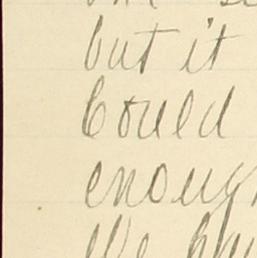 but it
Could
enough
We